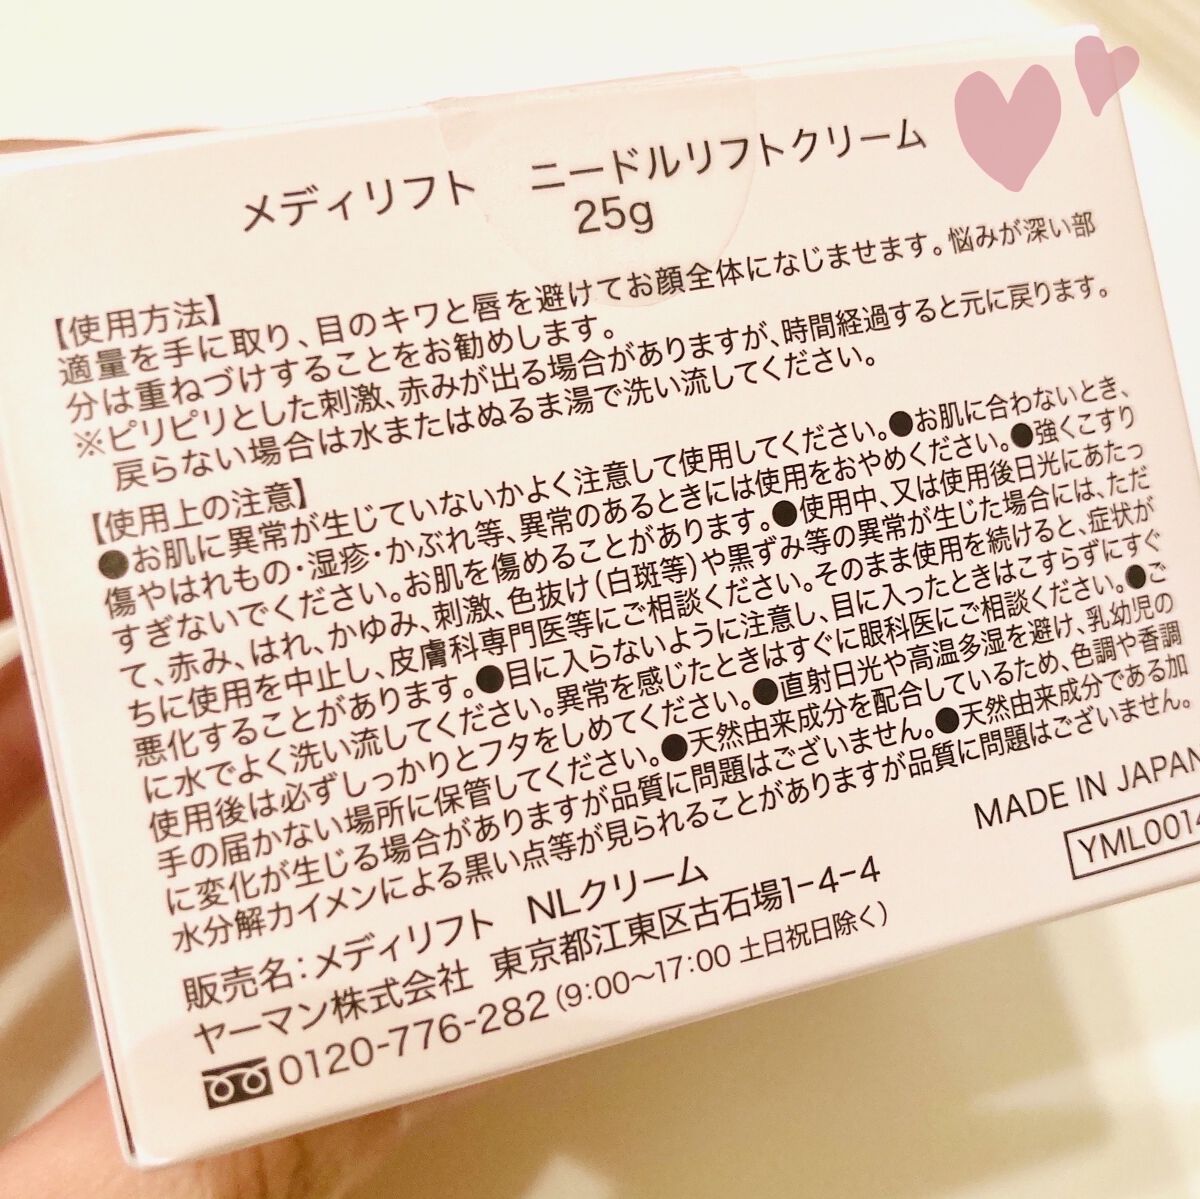 メディリフト　ニードルリフトクリーム
25g
【使用方法】
適量を手に取り、目のキワと唇を避けてお顔全体になじませます。悩みが深い部
分は重ねづけすることをお勧めします。
※ピリピリとした刺激、赤みが出る場合がありますが、時間経過すると元に戻ります。
戻らない場合は水またはぬるま湯で洗い流してください。
【使用上の注意】
●お肌に異常が生じていないかよく注意して使用してください。●お肌に合わないとき、
傷やはれもの・湿疹・かぶれ等、異常のあるときには使用をおやめください。●強くこすり
すぎないでください。お肌を傷めることがあります。●使用中、又は使用後日光にあたっ
て、赤み、はれ、かゆみ、刺激、色抜け(白斑等)や黒ずみ等の異常が生じた場合には、ただ
ちに使用を中止し、皮膚科専門医等にご相談ください。そのまま使用を続けると、症状が
悪化することがあります。●目に入らないように注意し、目に入ったときはこすらずにすぐ
に水でよく洗い流してください。異常を感じたときはすぐに眼科医にご相談ください。●ご
使用後は必ずしっかりとフタをしめてください。●直射日光や高温多湿を避け、乳幼児の
手の届かない場所に保管してください。●天然由来成分を配合しているため、色調や香調
に変化が生じる場合がありますが品質に問題はございません。●天然由来成分である加
水分解カイメンによる黒い点等が見られることがありますが品質に問題はございません。
販売名：メディリフト　NLクリーム
MADE IN JAPAN
ヤーマン株式会社　東京都江東区古石場1-4-4
YML0014
0120-776-282(9:00〜17:00 土日祝日除く)